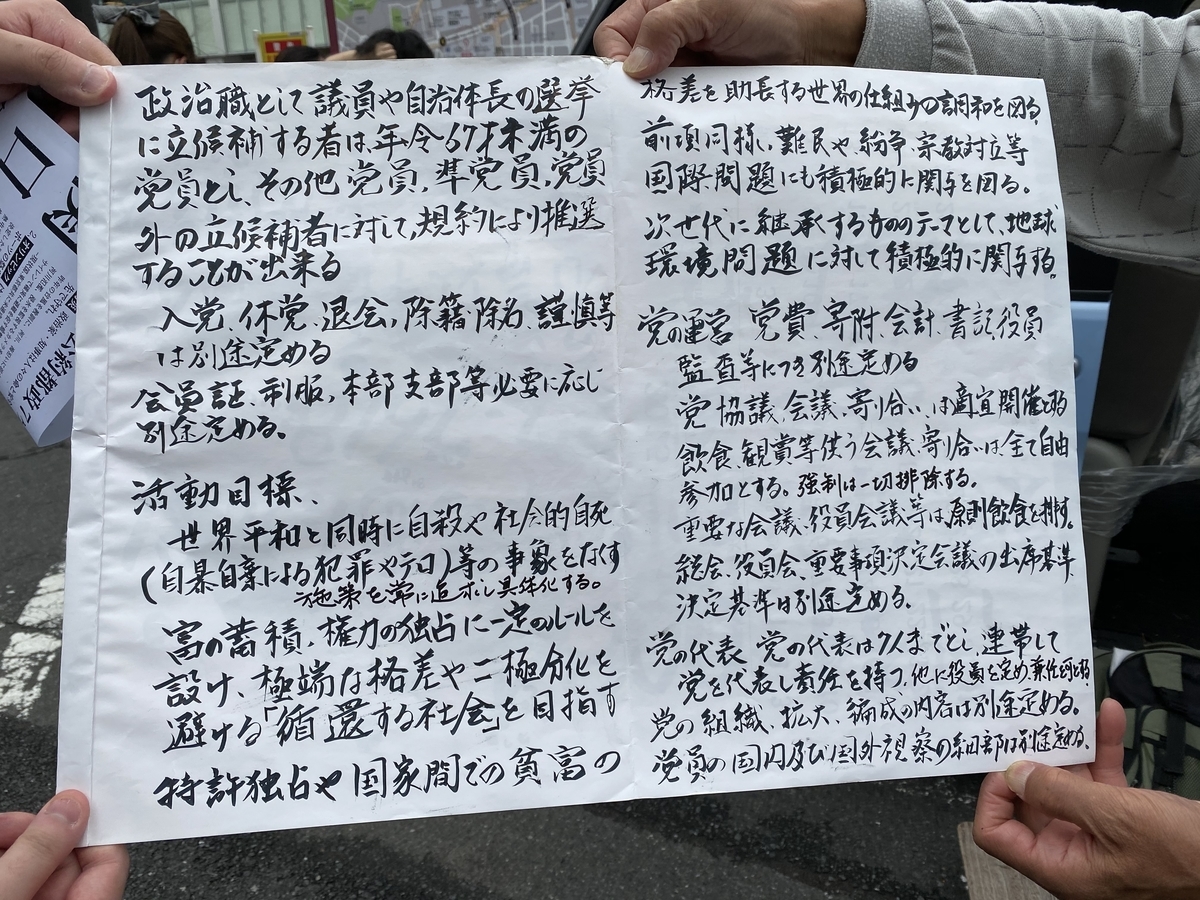 政治職として議員や自治体長の選挙
に立候補する者は、年令67才未満の
党員とし、その他党員、準党員、党員
外の立候補者に対して、規約により推選
することが出来る
入党、休党、退会、除籍、除名、謹慎等
は別途定める
会員証、制服、本部支部等必要に応じ
別途定める。
活動目標、
世界平和と同時に自殺や社会的自死
(自暴自棄による犯罪やテロ)等の事象をなくす
施策を常に追求し具体化する。
富の蓄積、権力の独占に一定のルールを
設け、極端な格差や二極分化を
避ける「循還する社会」を目指す
特許独占や国家間での貧富の
格差を助長する世界の仕組みの調和を図る。
前項同様、難民や紛争、宗教対立等
国際問題にも積極的に関与を図る。
次世代に継承するもののテーマとして、地球
環境問題に対して積極的に関与する。
党の運営 党費、寄附、会計、書記、役員
監査等につき別途定める
党協議、会議、寄り合い、は適宜開催とする
飲食、観賞等伴う会議、寄り合いは全て自由
参加とする。強制は一切排除する。
重要な会議、役員会議等は原則飲食を排す。
総会、役員会、重要事項決定会議の出席基準、
決定基準は別途定める。
党の代表 党の代表は7人までとし、連帯して
党を代表し責任を持つ、他に役員を定め、兼任可とする
党の組織、拡大、編成の内容は別途定める。
党員の国内及び国外視察の細部は別途定める、